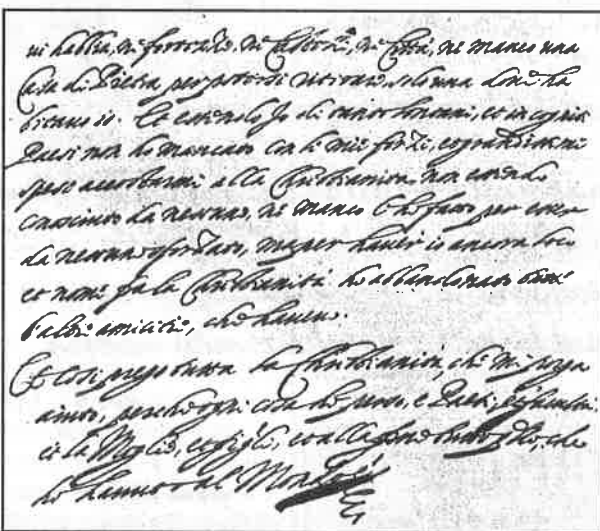 ui habbia, ne fortezze, ne, ne Città, ne manco una
Casa di Pietra per potersi retirare, solo una doue ha
bitauo io. Et essendo Jo di lontani, et incogniti
Paesi non ho mancato con le mie forze, et grandissime
spese accostarmi alla Christianità non essendo
conosciuto da nessuno, ne manco l'ho fatto per esser
da nessuno sforzato, ma per hauer io ancora loco
et nome fra la Christianità ho abbandonato tutte
l'altre amicitie, che haueuo.
Et così prego tutta la Christianità, che mi porga
aiuto, perche ogni cosa ho perso, e Paesi, et
et la Moglie, et figli, et alla fine tutto quello, che
ho hauuto al Mondo